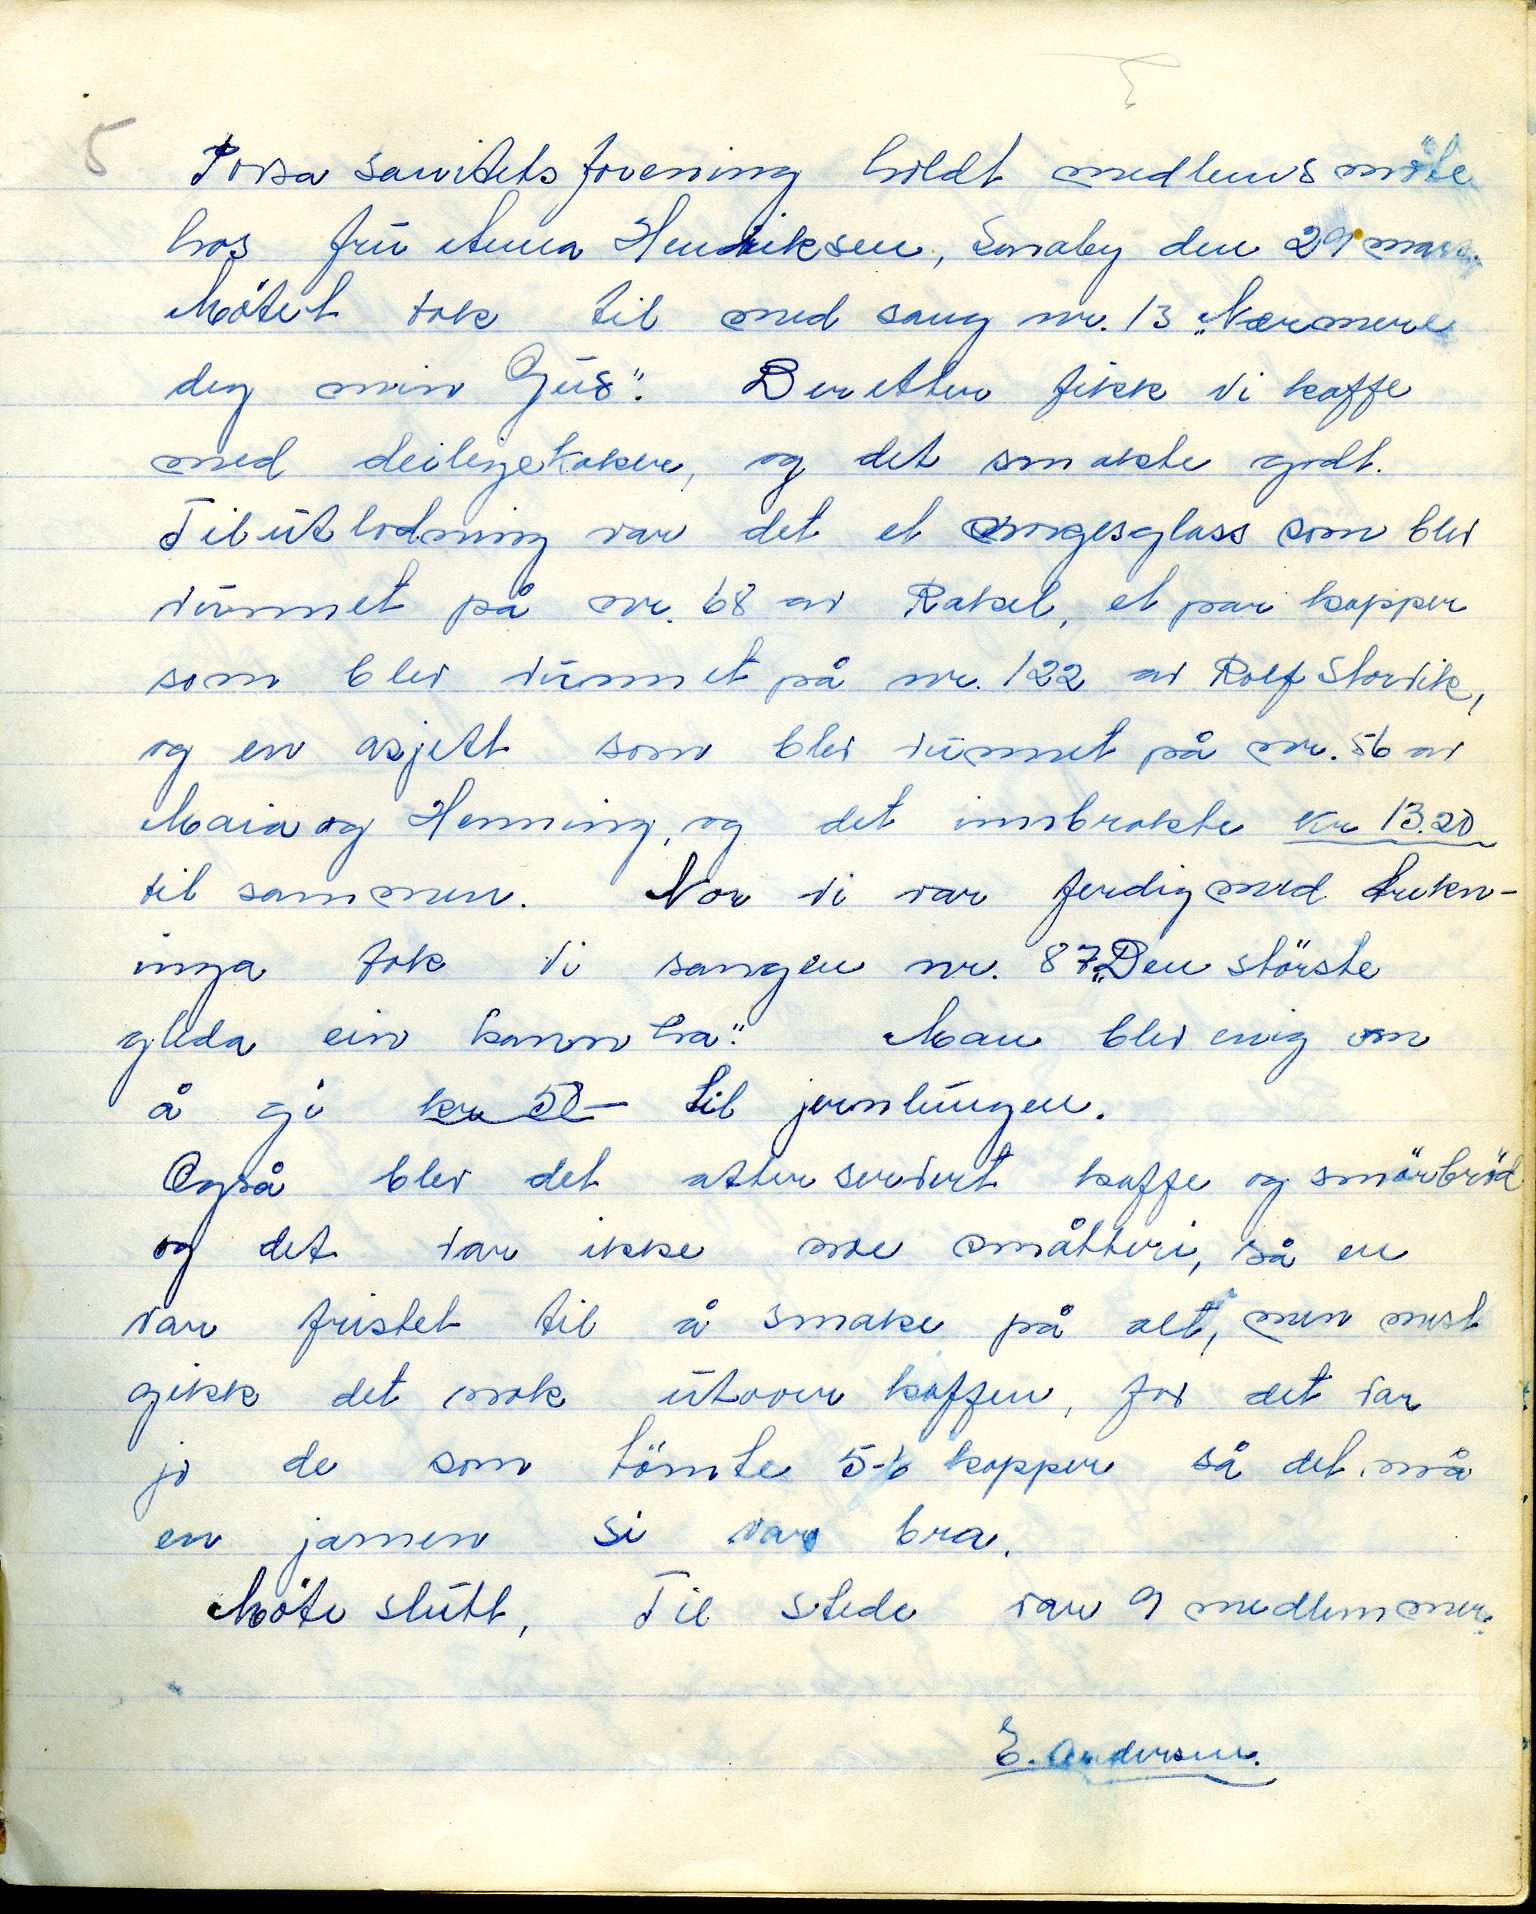 5
Porsa sanitetsforening holdt medlems möte
hos frū Anna Hendriksen, den 29 mars.
Mötet tok til med sang nr. 13 „Nærmere
deg min Gūd". Deretter fikk vi kaffe
med deilige kaker, og det smakte godt.
Til ūtlodning var det et norgesglass som blev
vūnnet på nr. 68 av Rakel, et par kopper
som blev vūnnet på nr. 122 av Rolf Storvik,
og en asjett som blev vūnnet på nr. 56 av
Maia og Henning, og det innbrakte kr 13.20
til sammen. Nor vi var ferdig med trekn-
inga tok vi sangen nr. 87 „Den störste
gleda ein kann ha". Man blev enig om
å gi kr 50- til jernlūngen.
Også blev det atter servert kaffe og smörbröd
og det var ikke noe småtteri, så en
var fristet til å smake på alt, men mest
gikk det nok ūtover kaffen, for det var
jo de som tömte 5-6 kopper så det må
en jamen si var bra.
Möte slūtt, Til stede var 9 medlemmer.
E. Andersen.